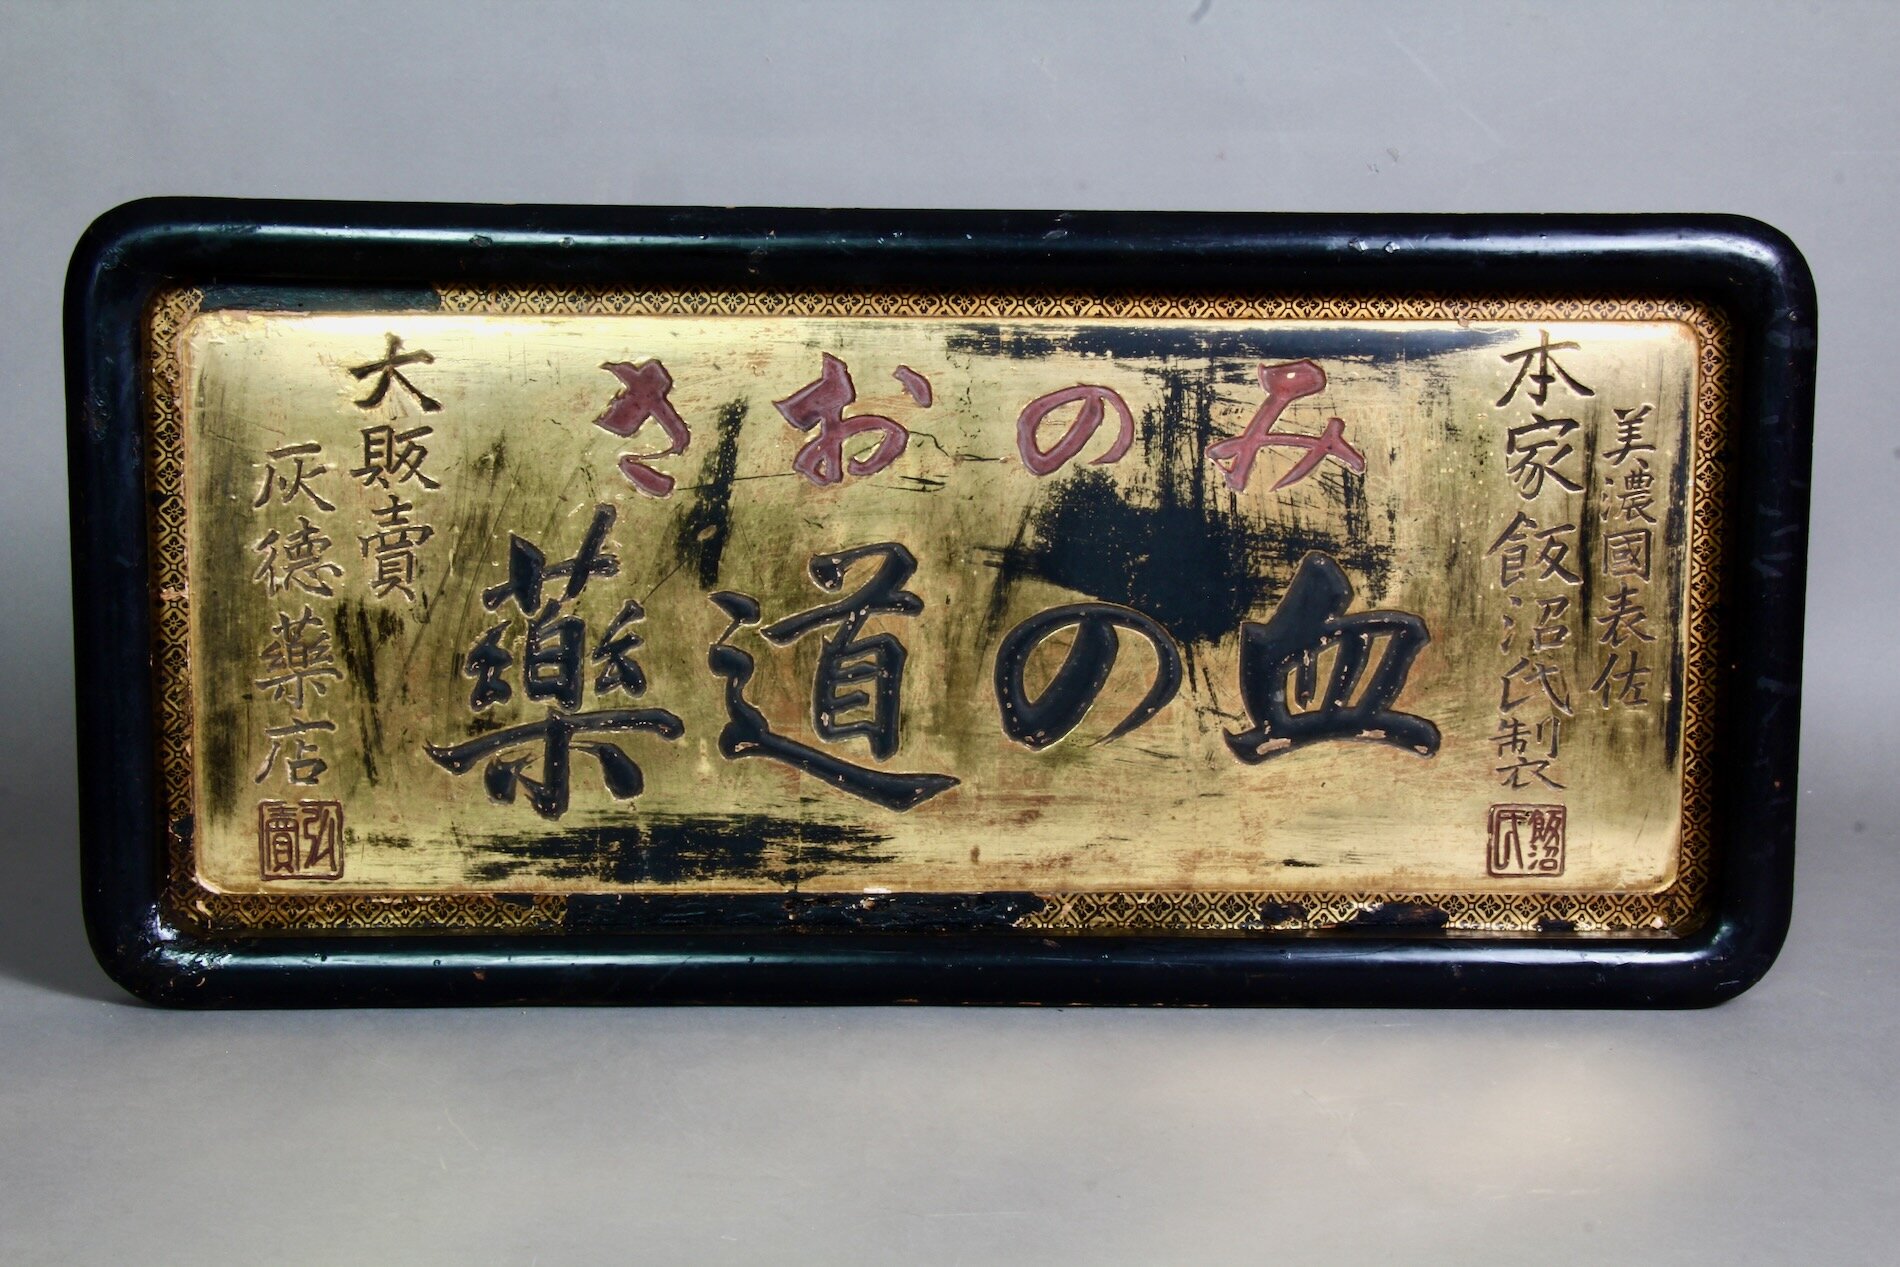 美濃國表佐
本家飯沼氏製
飯沼氏
みのおさ
血の道藥
大販賣
灰德藥店
弘賣